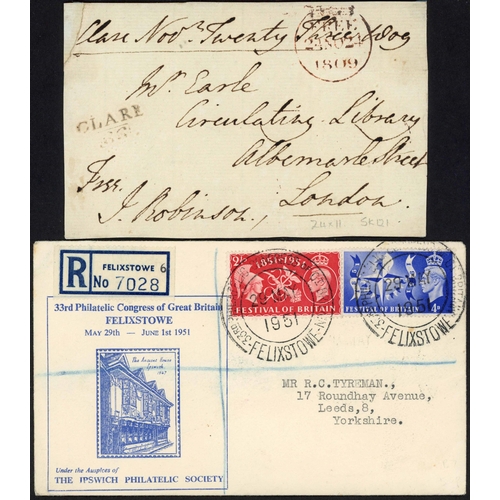 Clare Novr. Twenty Three 1809
FREE
1809
CLARE
Mr. Earle
Circulating Library
Albemarle Street
London
Free
J. Robinson
R
FELIXSTOWE 6
No 7028
33rd Philatelic Congress of Great Britain
FELIXSTOWE
MAY 29th — JUNE 1st 1951
The Ancient House
Ipswich
Under the Auspices of
THE IPSWICH PHILATELIC SOCIETY
1851-1951
FESTIVAL OF BRITAIN
FESTIVAL OF BRITAIN
4D
1951
FELIXSTOWE
1951
FELIXSTOWE
MR R.C.TYREMAN.,
17 Roundhay Avenue,
Leeds,8,
Yorkshire.